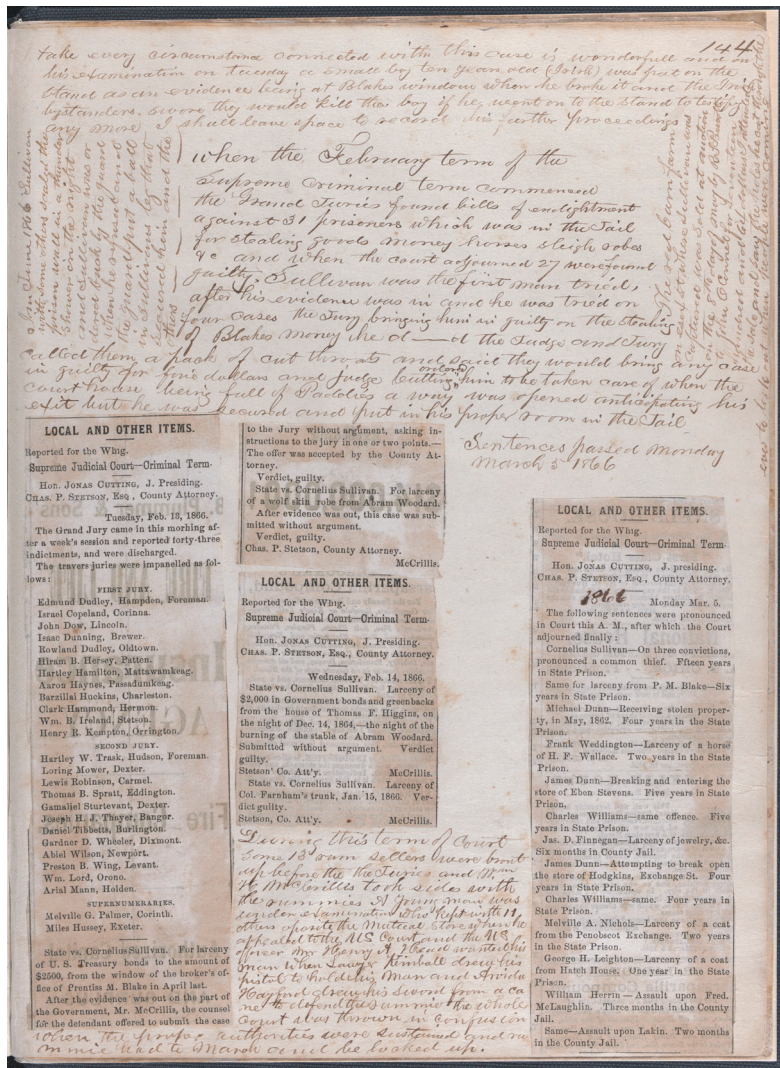 144
take every circumstance connected with this case is wonderfull and on
his examination on tuesday a small boy ten year old was put on the
stand as an evidence being at Blakes window when he broke it and the
bystanders swore they would kill the boy if he went on to the stand to testify
any more I shall leave space to record his further proceedings
when the February term of the
Supreme Criminal term commenced
the Grand Juries found bills of enditghtment
against 31 prisoners which was in the Jail
for stealing goods money horses sleigh robes
&c and when the court adjourned 27 were found
guilty. Sullivan was the first man tried,
after his evidence was in and he was tried on
four cases the Jury bringing him in guilty on the stealing
of Blakes money he d—d the Judge and Jury
called them a pack of cut throats and said they would bring any case
in guilty for five dollars and judge Cutting ordered him to be taken care of when the
court house being full of Paddies a way was opened anticipating his
exit but he was secured and put in his proper room in the Jail
in June 1866 Sullivan
with some others scaled the
prison wall in a thunder
shower late at night
and Sullivan was or
dered back by the guard
when he refused and
the guard put a ball
in Sullivans leg that
secured him and the
others
LOCAL AND OTHER ITEMS.
Reported for the Whig.
Supreme Judicial Court—Criminal Term-
Hon. JONAS CUTTING, J. Presiding.
CHAS. P. STETSON, ESQ, County Attorney.
Tuesday, Feb. 13, 1866.
The Grand Jury came in this morning af-
ter a week's session and reported forty-three
indictments, and were discharged.
The travers juries were impanelled as fol-
lows:
FIRST JURY.
Edmund Dudley, Hampden, Foreman.
Israel Copeland, Corinna.
John Dow, Lincoln.
Isaac Dunning, Brewer.
Rowland Dudley, Oldtown.
Hiram B. Hersey, Patten.
Hartley Hamilton, Mattawamkeag.
Aaron Haynes, Passadumkeag.
Barzillai Huckins, Charleston.
Clark Hammond, Hermon.
Wm. B. Ireland, Stetson.
Henry R. Kempton, Orrington.
SECOND JURY.
Hartley W. Trask, Hudson, Foreman.
Loring Mower, Dexter.
Lewis Robinson, Carmel.
Thomas B. Spratt, Eddington.
Gamaliel Sturtevant, Dexter.
Joseph H. J. Thayer, Bangor.
Daniel Tibbetts, Burlington.
Gardner D. Wheeler, Dixmont.
Abiel Wilson, Newport.
Preston B. Wing, Levant.
Wm. Lord, Orono.
Arial Mann, Holden.
SUPERNUMERARIES.
Melville G. Palmer, Corinth.
Miles Hussey, Exeter.
State vs. Cornelius Sullivan. For larceny
of U. S. Treasury bonds to the amount of
$2500, from the window of the broker's of-
fice of Prentiss M. Blake in April last.
After the evidence was out on the part of
the Government, Mr. McCrillis, the counsel
for the defendant offered to submit the case
to the Jury without argument, asking in-
structions to the jury in one or two points.—
The offer was accepted by the County At-
torney.
Verdict, guilty.
State vs. Cornelius Sullivan. For larceny
of a wolf skin robe from Abram Woodard.
After evidence was out, this case was sub-
mitted without argument.
Verdict, guilty.
Chas. P. Stetson, County Attorney.
McCrillis.
LOCAL AND OTHER ITEMS.
Reported for the Whig.
Supreme Judicial Court—Criminal Term-
Hon. JONAS CUTTING, J. Presiding.
CHAS. P. STETSON, ESQ., County Attorney.
Wednesday, Feb. 14, 1866.
State vs. Cornelius Sullivan. Larceny of
$2,000 in Government bonds and greenbacks
from the house of Thomas F. Higgins, on
the night of Dec. 14, 1864,—the night of the
burning of the stable of Abram Woodard.
Submitted without argument. Verdict
guilty.
Stetson' Co. Att'y. McCrillis.
State vs. Cornelius Sullivan. Larceny of
Col. Farnham's trunk, Jan. 15, 1866. Ver-
dict guilty.
Stetson, Co. Att'y. McCrillis.
During this term of Court
some 13 rum sellers were brout
up before the the Juries and
H McCrillis took sides with
the rummies A young man was
under examination who kept with 11
others oposite the Mutual Store when he
appealed to the US Court and the US
officer Mr Henry A Head wanted his
man when Lawyer Kimball drew his
pistol to hold his man and
Hayford drew his Sword from a ca
ne to defend the rummie the whole
Court was thrown in confusion
when the proper authorities were sustained and ru
mmie had to March and be locked up.
Sentences passed Monday
March 5 1866
LOCAL AND OTHER ITEMS.
Reported for the Whig.
Supreme Judicial Court—Criminal Term-
Hon. JONAS CUTTING, J. presiding.
CHAS. P. STETSON, ESQ, County Attorney.
1866 Monday Mar. 5.
The following sentences were pronounced
in Court this A. M., after which the Court
adjourned finally:
Cornelius Sullivan—On three convictions,
pronounced a common thief. Ffteen years
in State Prison.
Same for larceny from P. M. Blake—Six
years in State Prison.
Michael Dunn—Receiving stolen proper-
ty, in May, 1862. Four years in the State
Prison.
Frank Weddington—Larceny of a horse
of H. F. Wallace. Two years in the State
Prison.
James Dunn—Breaking and entering the
store of Eben Stevens. Five years in State
Prison.
Charles Williams—same offence. Five
years in State Prison.
Jas. D. Finnegan—Larceny of jewelry, &c.
Six months in County Jail.
James Dunn—Attempting to break open
the store of Hodgkins, Exchange St. Four
years in State Prison.
Charles Williams—same. Four years in
State Prison.
Melville A. Nichols—Larceny of a coat
from the Penobscot Exchange. Two years
in the State Prison.
George H. Leighton—Larceny of a coat
from Hatch House. One year in the State
Prison.
William Herrin—Assault upon Fred.
McLaughlin. Three months in the County
Jail.
Same—Assault upon Lakin. Two months
in the County Jail.